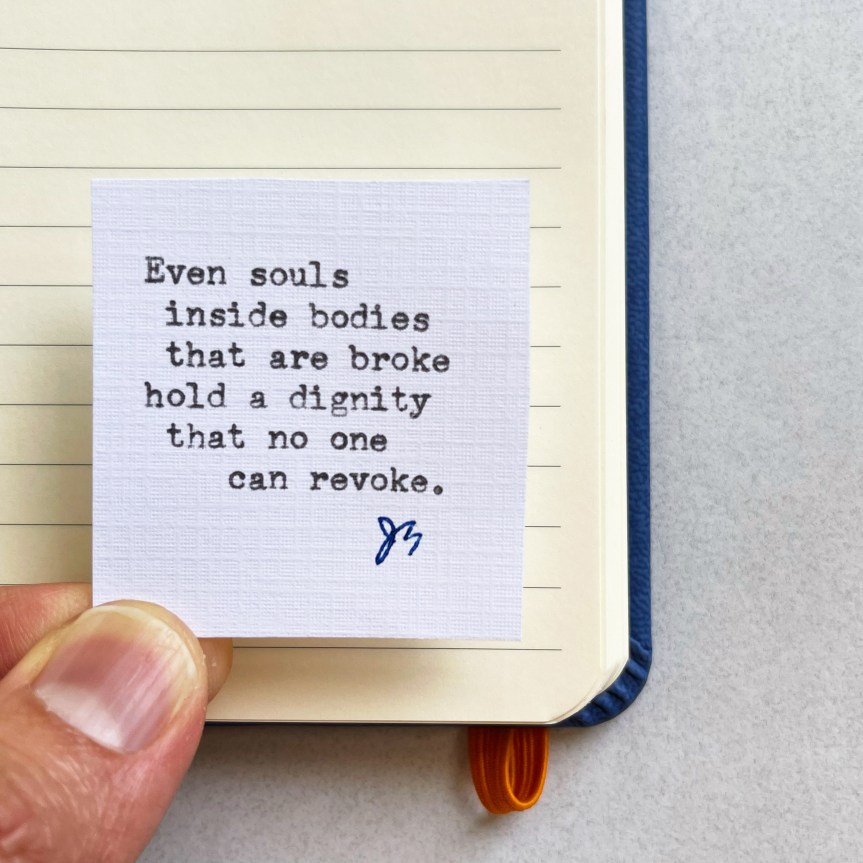 Even souls
inside bodies
that are broke
hold a dignity
that no one
can revoke.